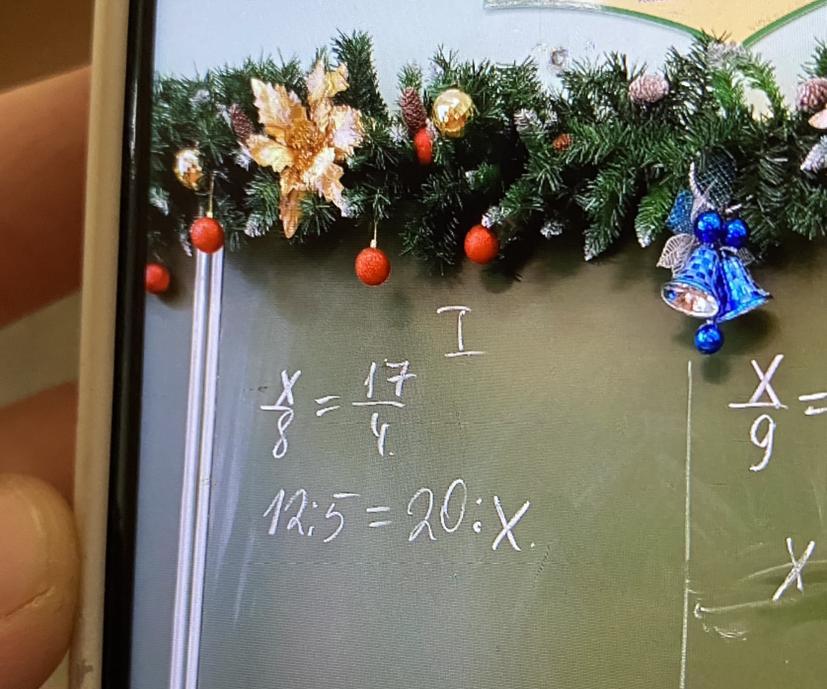 I
x/8 = 17/4.
12:5 = 20:x.
x/9 =
x